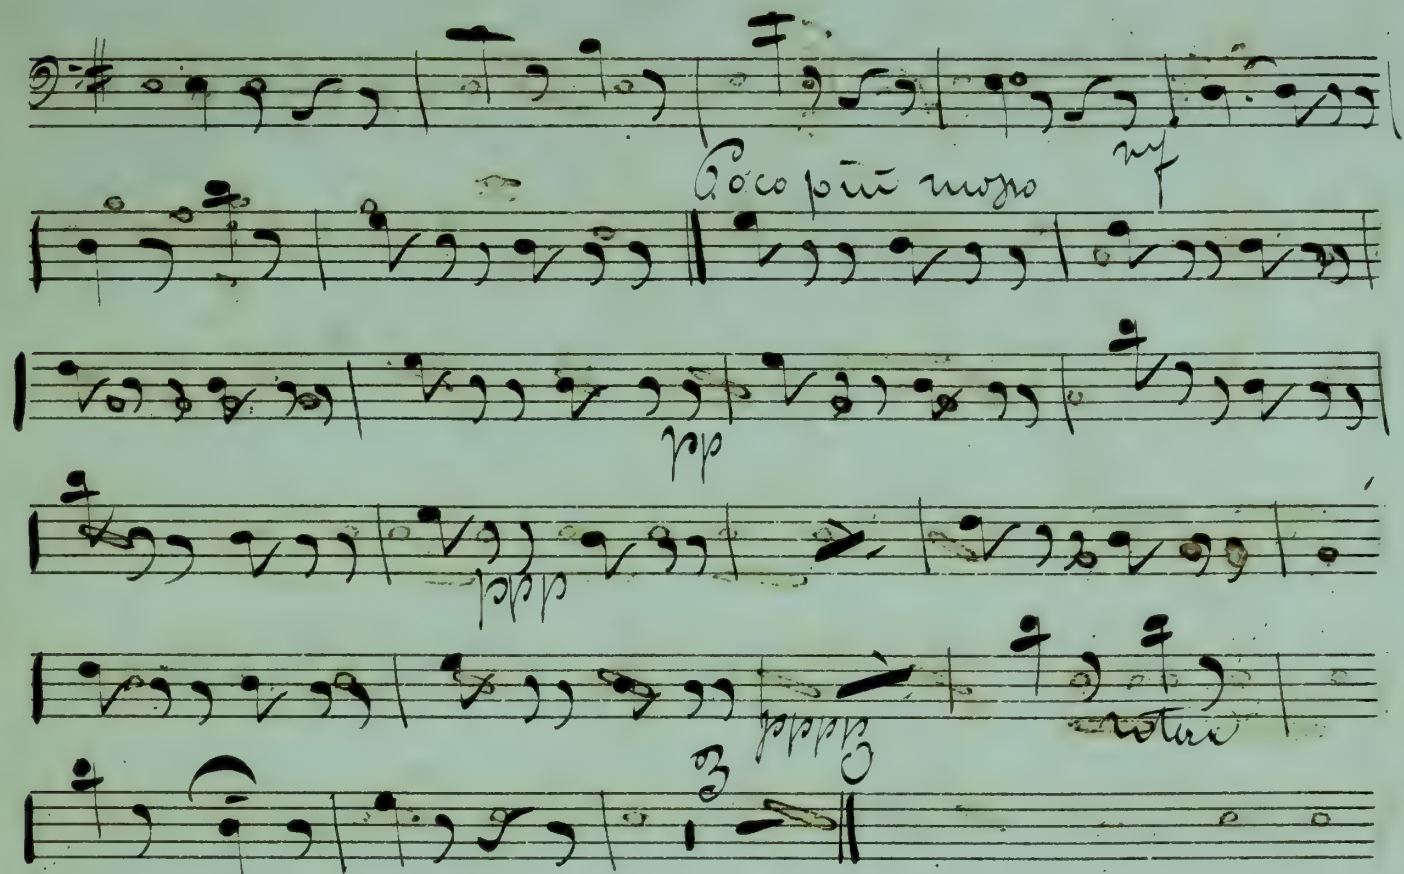 Poco più mosso
rf
pp
ppp
pppp
3